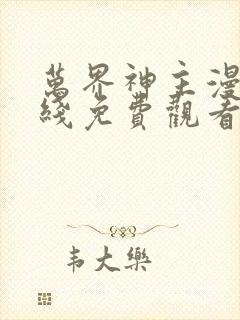 萬界神主漫
綫免費觀看
韦大樂